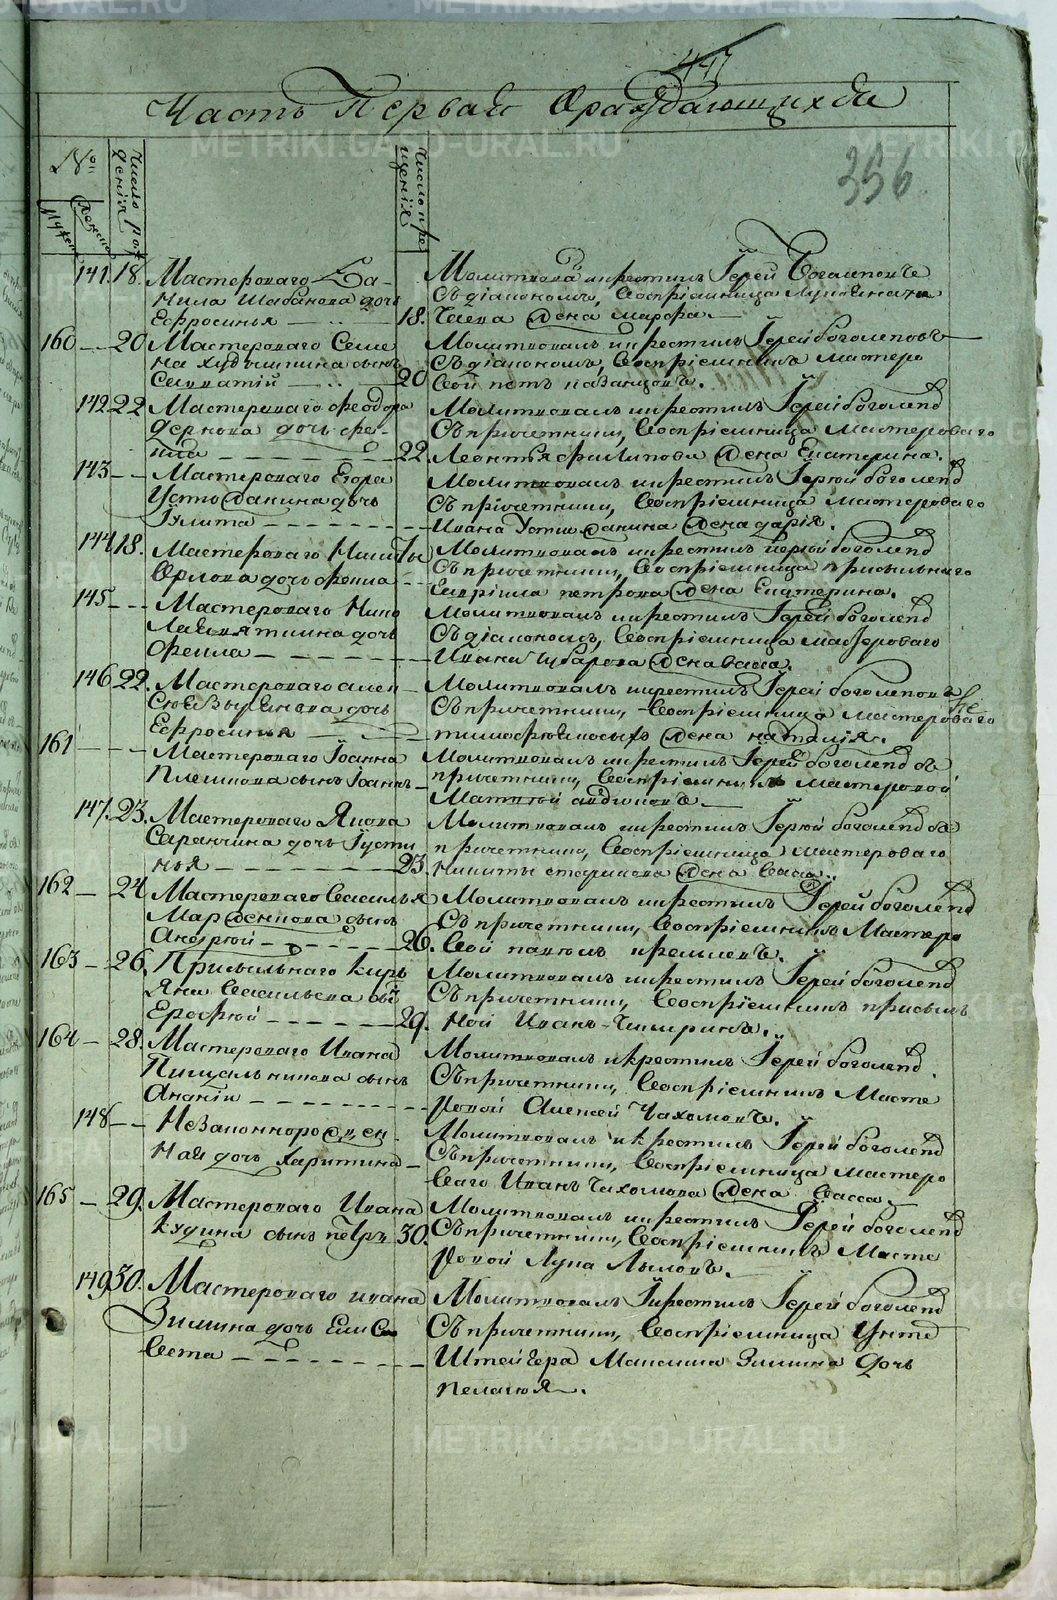 447
Часть Первая О раждающихся
356
№
Мужеск
Женска
Число рож
денія
Число кре
щенія
141. 18. Мастероваго Да-
нила Шабанова дочь
Ефросинья 18.
Молитвовалъ и крестилъ Іерей Боголеповъ
Съ діакономъ, Воспріемница
жена марфа.
160 20 Мастероваго Семе
на сынъ
20
Молитвовалъ и крестилъ Іерей боголеповъ
Съ діакономъ, Воспріемникъ мастеро
вой петъ казанцовъ.
142 22 Мастероваго феодора
дочь фек-
22.
Молитвовалъ и крестилъ Іерей боголепо
Съ причетники, Воспріемница мастероваго
Леонтья филипова жена Екатерина.
143 Мастероваго Егора
Устюжанина дочь
Іулита
Молитвовалъ и крестилъ Іерей боголепо
Съ причетники, Воспріемница мастероваго
Ивана Устюжанина жена дарія.
144 18. Мастероваго Никиты
Орлова дочь фекла
Молитвовалъ и крестилъ іерей боголепо
Съ причетники, Воспріемница присыльнаго
Гавріила петрова жена Екатерина.
145 Мастероваго Нико
лая дочь
фекла
Молитвовалъ и крестилъ Іерей боголепо
Съ діакономъ, Воспріемница мастероваго
Ивана Чубарова жена васса.
146 22. Мастероваго алек
сея дочь
Ефросинья
Молитвовалъ и крестилъ Іерей боголепов
Съ причетники, Воспріемница мастероваго
жена наталія.
161 Мастероваго Іоанна
Плешкова сынъ Іоаннъ
Молитвовалъ и крестилъ Іерей боголепо съ
причетники, Воспріемникъ мастеровой
Матвей авдюковъ
147. 23. Мастероваго Якова
Саранчина дочь Іусти
нья 23.
Молитвовалъ и крестилъ Іерей боголепо съ
причетники, Воспріемница мастероваго
Никиты старикова жена Васса.
162 24 Мастероваго Василья
Марженкова сынъ
Андрей 26.
Молитвовалъ и крестилъ Іерей боголепо
Съ причетники, Воспріемникъ Мастеро
вой павелъ кремлевъ.
163 26. Присыльнаго Кирь
яна Васильева сы
Ерофей 29.
Молитвовалъ и крестилъ Іерей боголепо
Съ причетники, Воспріемникъ присыль
ной Иванъ Чигиринъ.
164 28. Мастероваго Ивана
Пищальникова сынъ
Ананіи
Молитвовалъ и крестилъ Іерей боголепо
Съ причетники, Воспріемникъ Масте
ровой Алексей Чахомовъ.
148 Незаконнорожден
ная дочь Харитина
Молитвовалъ и крестилъ Іерей боголепо
Съ причетники, Воспріемница мастеро
ваго Иванъ Чахомова жена Васса.
165 29. Мастероваго Ивана
Кудина сынъ петръ 30.
Молитвовалъ и крестилъ Іерей боголепо
Съ причетники, Воспріемникъ Масте
ровой Лука Лыловъ.
149 30. Мастероваго ивана
Зимина дочь Елиса
вета
Молитвовалъ и крестилъ Іерей боголепо
Съ причетники, Воспріемница Унте
Штейгера Максима Зимина дочь
пелагея.
METRIKI.GASO-URAL.RU